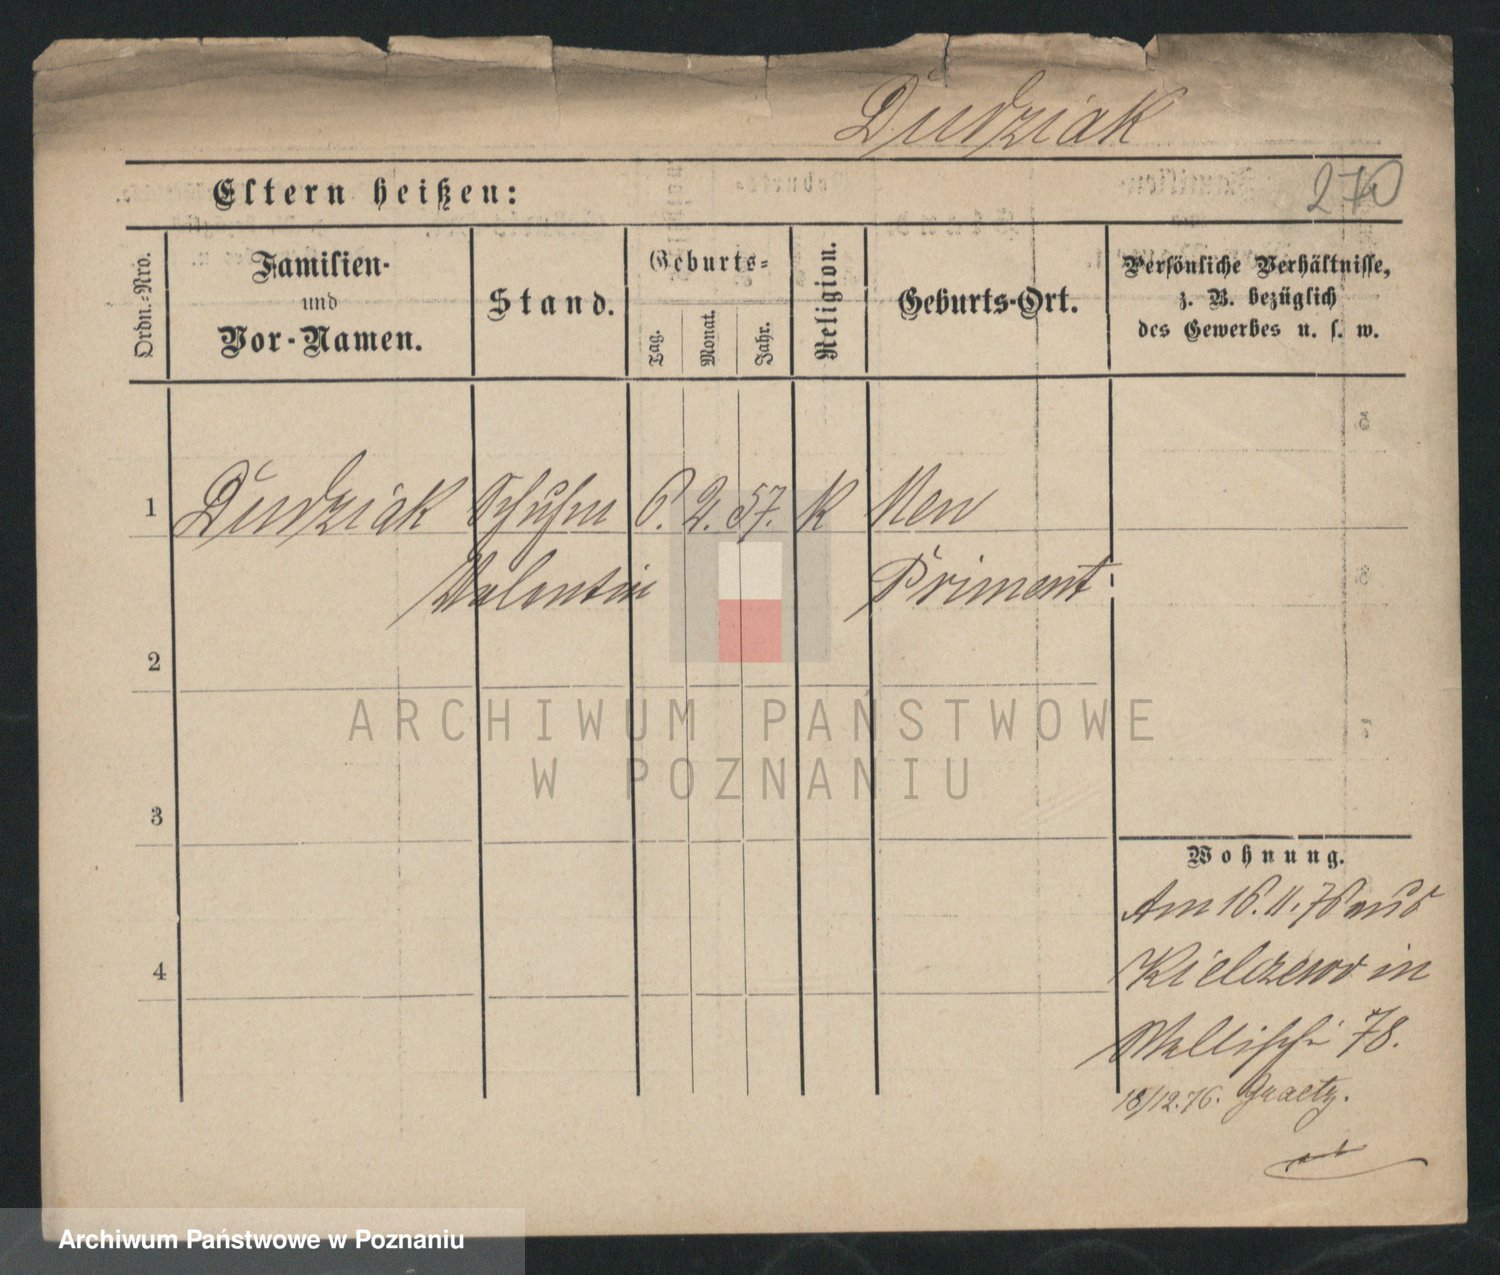 Dudziak
Eltern heißen:
270
Ordn.-Nro.
Familien-
und
Vor-Namen.
Stand.
Geburts-
Tag.
Monat.
Jahr.
Religion.
Geburts-Ort.
Persönliche Verhältnisse,
z. B. bezüglich
des Gewerbes u. s. w.
1 Dudziak 6. 2. 57. K Neu
Valentin Priment
2
3
4
Wohnung.
Am 16.11.76 aus
Kielczewo in
78.
18/12.76. Graetz.
ARCHIWUM PAŃSTWOWE
W POZNANIU
Archiwum Państwowe w Poznaniu